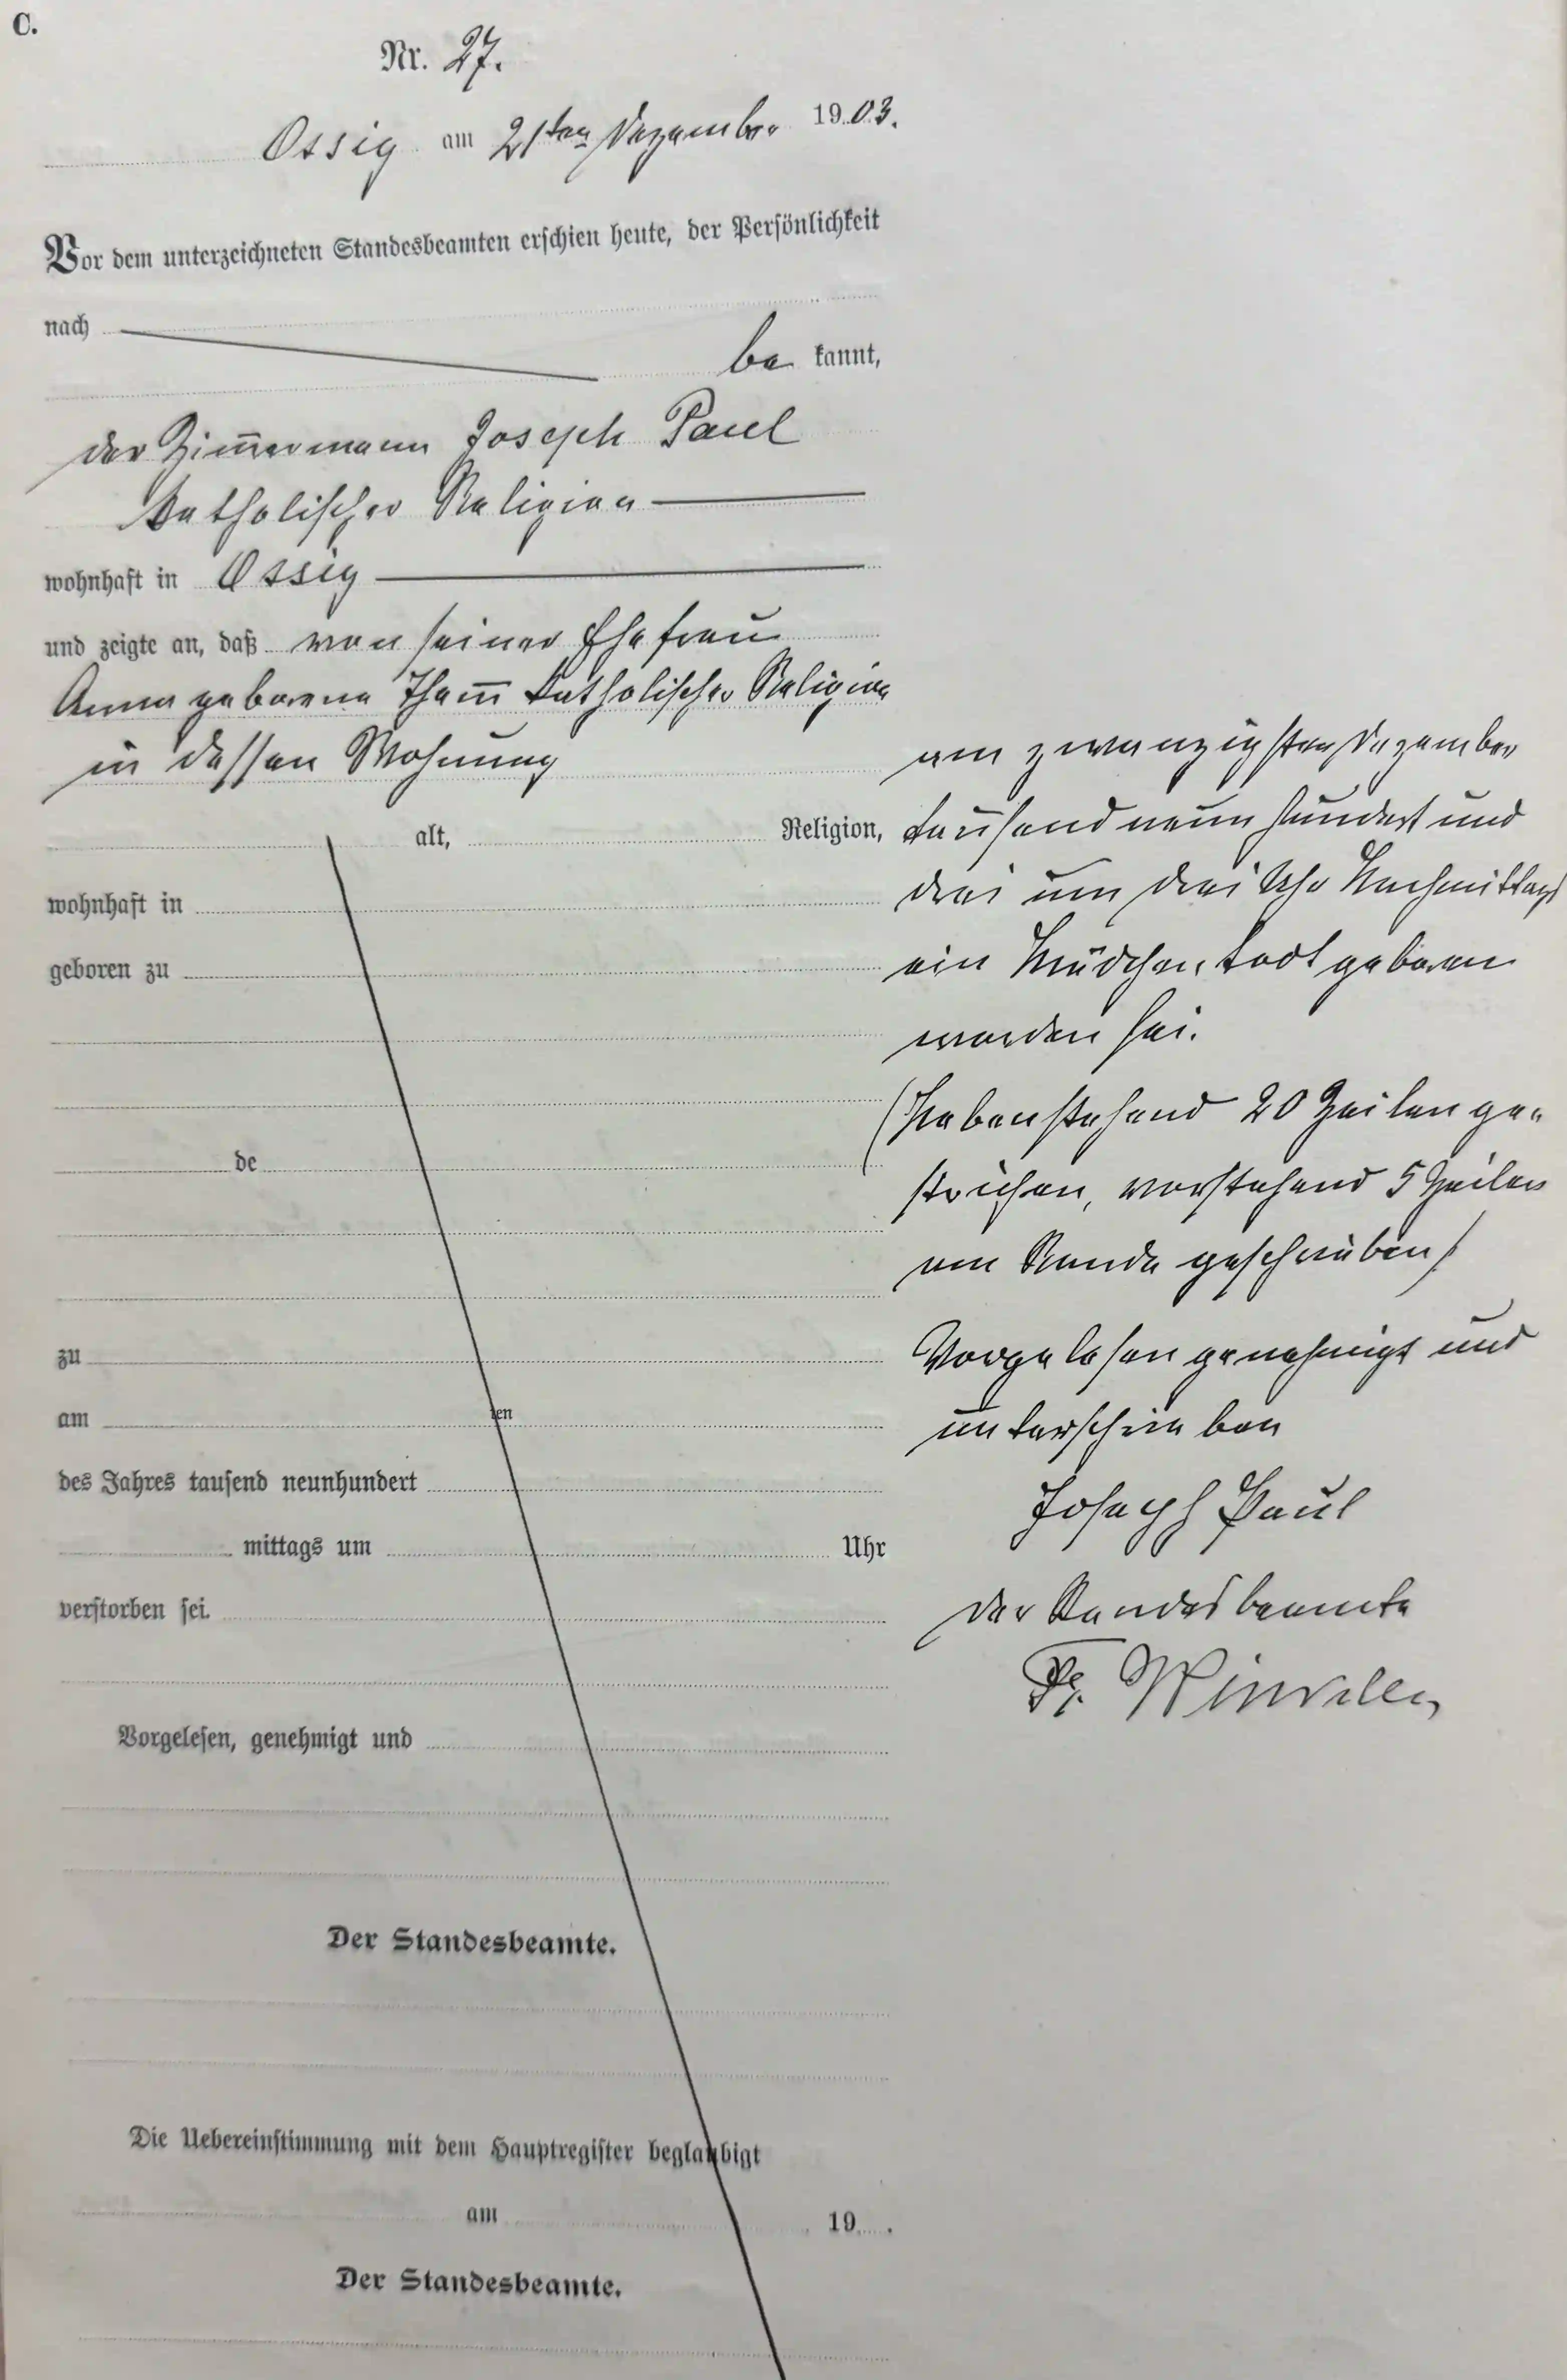 C.
Nr. 27.
Ossig am 21ten Dezember 1903.
Vor dem unterzeichneten Standesbeamten erschien heute, der Persönlichkeit
nach
be kannt,
der Zim̅ermann Joseph Paul
katholischer Religion
wohnhaft in Ossig
und zeigte an, daß von seiner Ehefrau
Anna geborene Tham̅ katholischer Religion
in dessen Wohnung
alt, Religion,
wohnhaft in
geboren zu
de
zu
am ten
des Jahres tausend neunhundert
mittags um Uhr
verstorben sei.
Vorgelesen, genehmigt und
Der Standesbeamte.
Die Uebereinstimmung mit dem Hauptregister beglaubigt
am 19 .
Der Standesbeamte.
am zwanzigsten Dezember
tausend neun hundert und
drei um drei Uhr Nachmittags
ein Mädchen todt geboren
worden sei.
(Nebenstehend 20 Zeilen ge-
strichen, vorstehend 5 Zeilen
am Rande geschrieben)
Vorgelesen genehmigt und
unterschrieben
Joseph Paul
Der Standesbeamte
Winkler